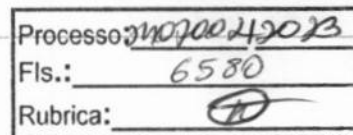 Processo: 2407004/2023
Fls.: 6580
Rubrica: